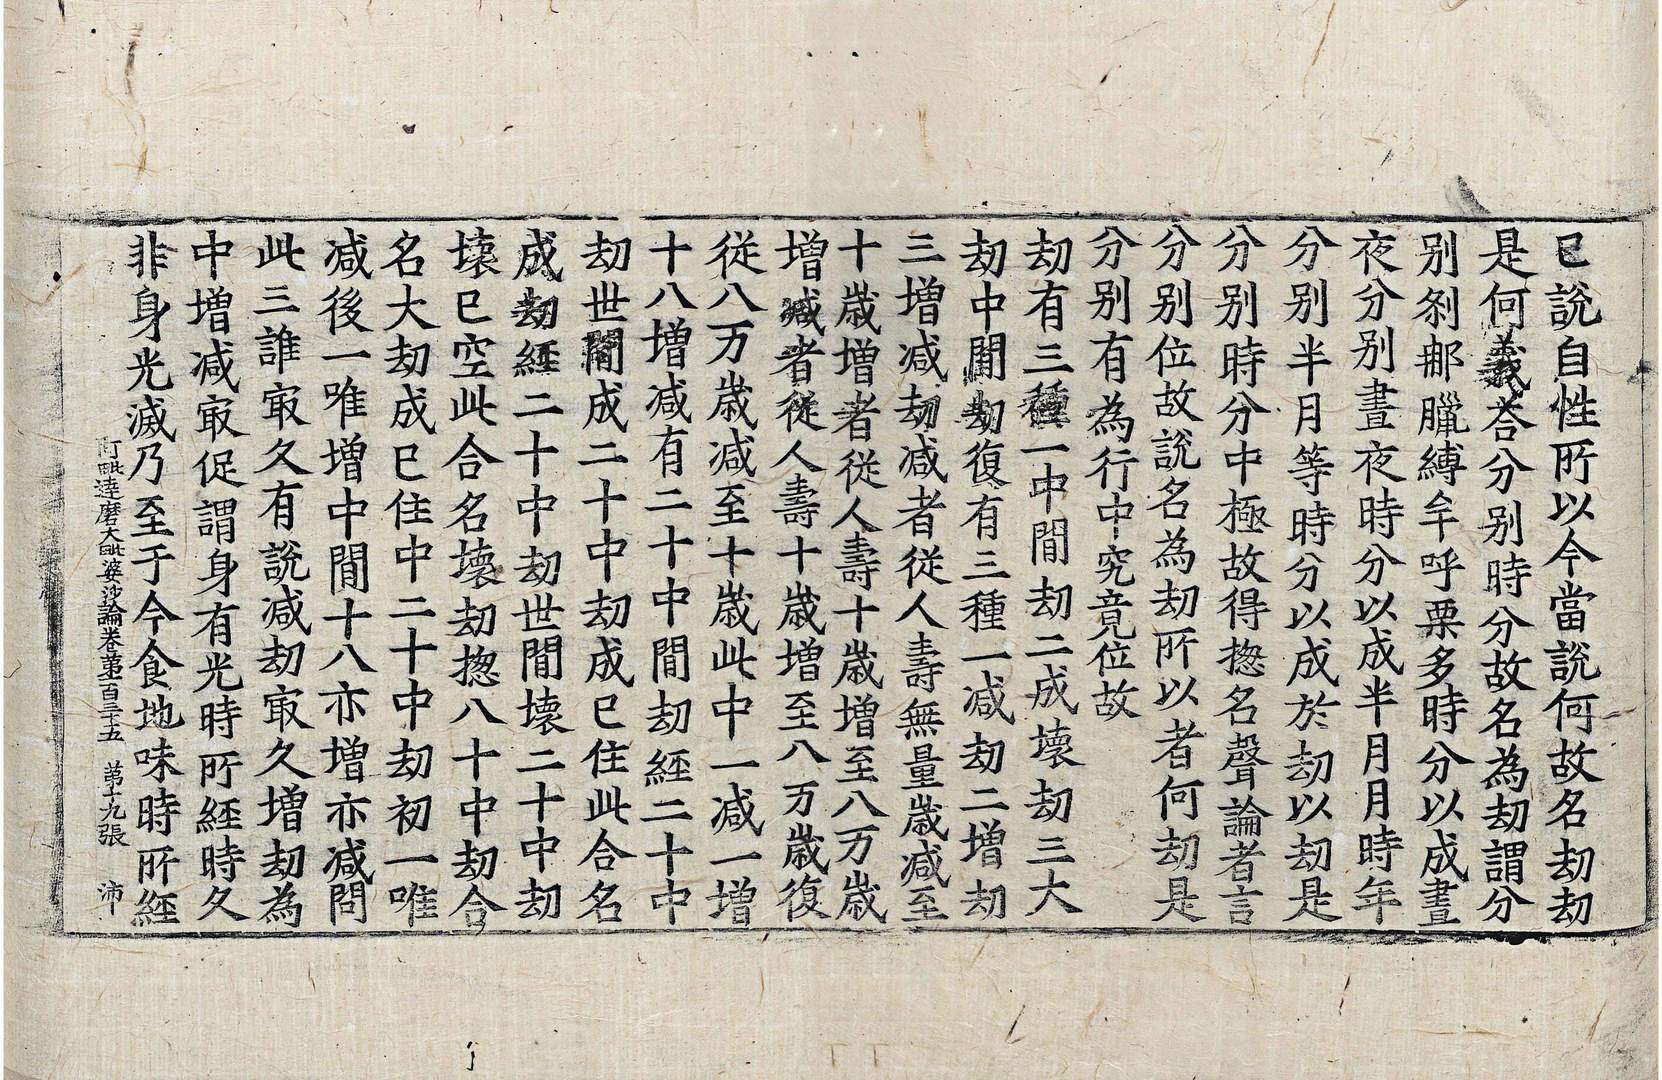 已說自性所以今當說何故名劫劫
是何義荅分別時分故名為劫謂分
別剎那臘縛牟呼栗多時分以成晝
夜分別晝夜時分以成半月月時年
分別半月等時分以成於劫以劫是
分別時分中極故得揔名聲論者言
分別位故說名為劫所以者何劫是
分別有為行中究竟位故
劫有三種一中間劫二成壞劫三大
劫中間劫復有三種一減劫二增劫
三增減劫減者從人壽無量歲減至
十歲增者從人壽十歲增至八万歲
增減者從人壽十歲增至八万歲復
從八万歲減至十歲此中一減一增
十八增減有二十中間劫經二十中
劫世間成二十中劫成已住此合名
成劫經二十中劫世間壞二十中劫
壞已空此合名壞劫揔八十中劫合
名大劫成已住中二十中劫初一唯
減後一唯增中間十八亦增亦減問
此三誰㝡久有說減劫㝡久增劫為
中增減㝡促謂身有光時所經時久
非身光滅乃至于今食地味時所經
阿毗達磨大毗婆沙論卷第一百三十五　第十九張　沛